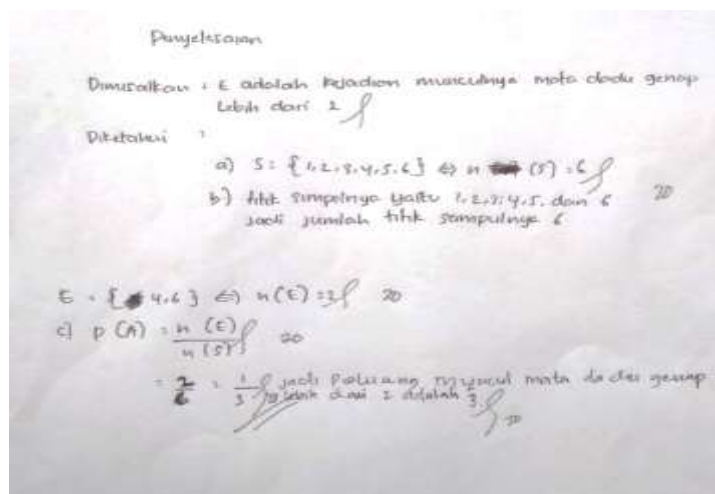 Penyelesaian
Dimisalkan : E adalah kejadian munculnya mata dadu genap
lebih dari 2
Diketahui :
a) S = {1,2,3,4,5,6} ⇔ n (S) = 6
b) titik sampelnya yaitu 1,2,3,4,5, dan 6 20
jadi jumlah titik sampelnya 6
E = {4,6} ⇔ n(E) = 2 20
c) P (A) = n (E) / n (S) 20
= 2/6 = 1/3 jadi Peluang muncul mata dadu genap
lebih dari 2 adalah 3